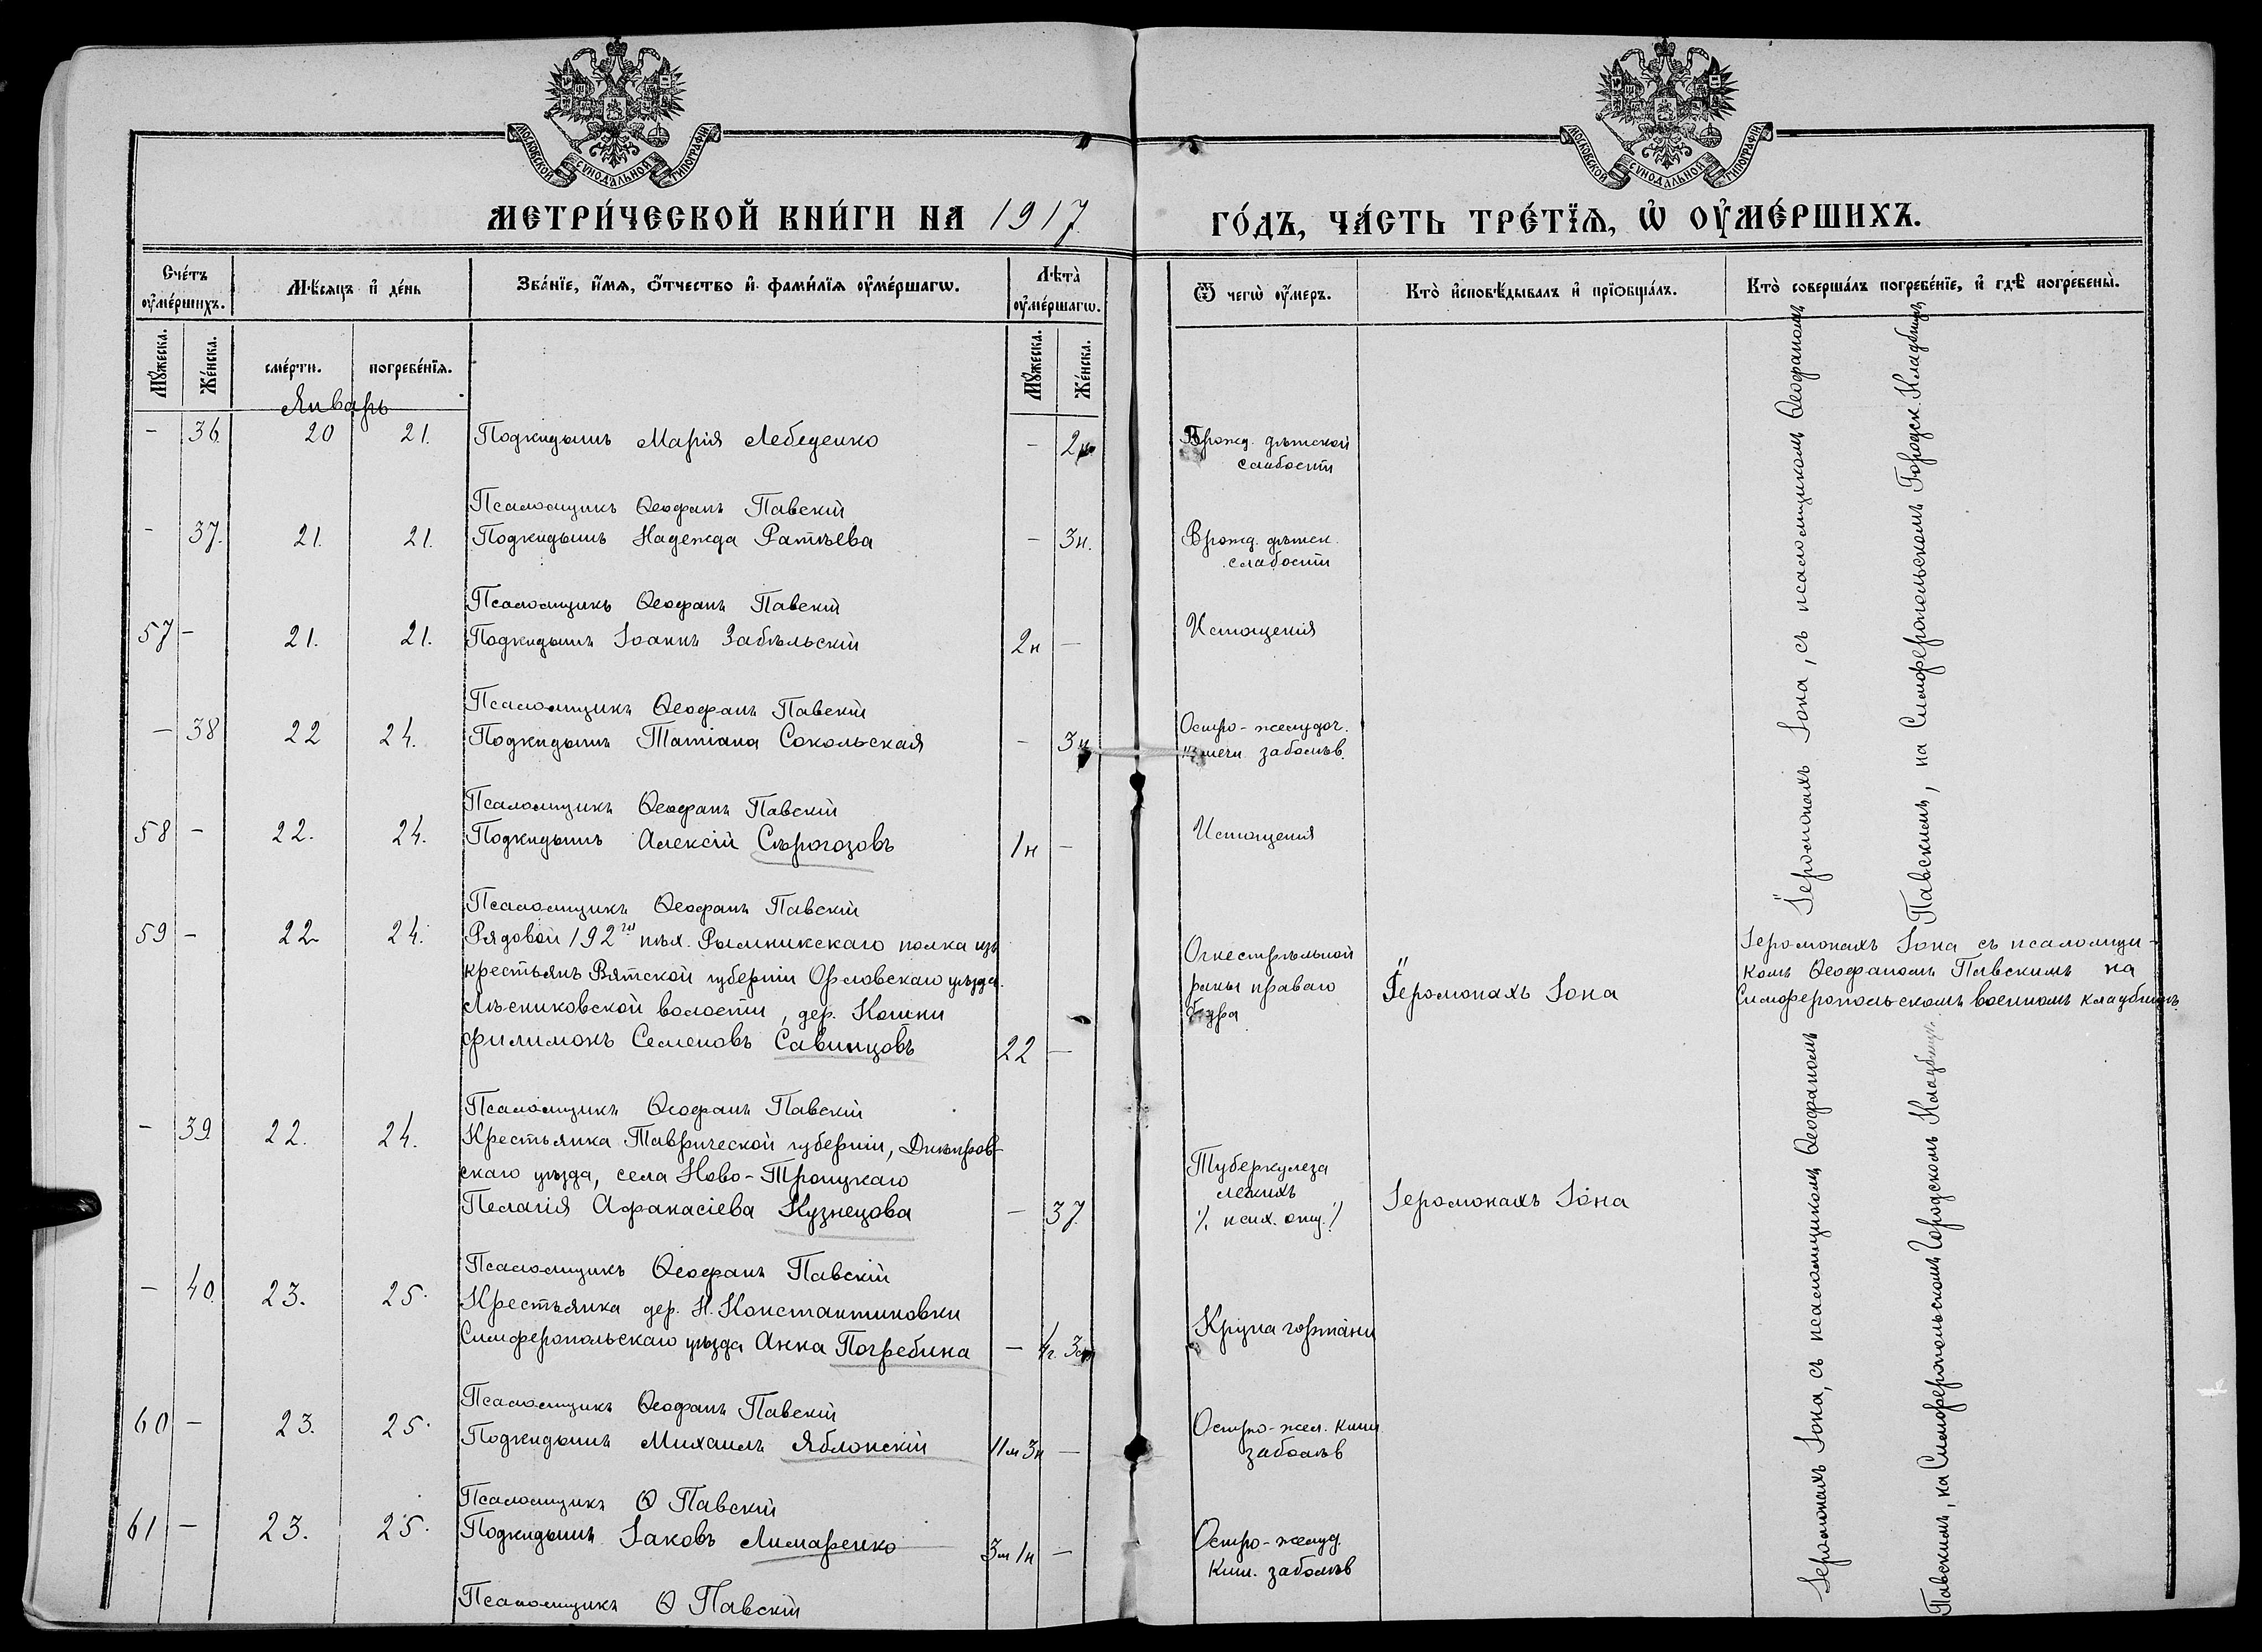 МОСКОВСКОЙ СѴНОДАЛЬНОЙ ТИПОГРАФІИ
МОСКОВСКОЙ СѴНОДАЛЬНОЙ ТИПОГРАФІИ
МЕТРИ́ЧЕСКОЙ КНИ́ГИ НА 1917
ГО́ДЪ, ЧА́СТЬ ТРЕ́ТЇѦ, Ѡ҆ ОУ҆МЕ́РШИХЪ.
Сче́тъ оу҆ме́ршихъ.
Мѣ́сяцъ и҆ де́нь
Зва́нїе, и҆́мѧ, ѻ҆́тчество и҆ фами́лїѧ оу҆ме́ршагѡ.
Лѣта̀ оу҆ме́ршагѡ.
Ѿ чегѡ̀ оу҆́меръ.
Кто̀ и҆сповѣ́дывалъ и҆ прїѡбща́лъ.
Кто̀ соверша́лъ погребе́нїе, и҆ гдѣ̀ погребены̀.
Мꙋ́жеска.
Же́нска.
сме́рти.
погребе́нїѧ.
Мꙋ́жеска.
Же́нска.
Январь
- 36 20 21. Подкидышъ Марія Лебеденко - 2н Врожд. дѣтской
слабости
Псаломщикъ Ѳеофанъ Павскій
- 37. 21. 21. Подкидышъ Надежда Ратьева - 3н. Врожд. дѣтск.
слабости
Псаломщикъ Ѳеофанъ Павскій
57 - 21. 21. Подкидышъ Іоаннъ Забѣльскій 2н - Истощенія
Псаломщикъ Ѳеофанъ Павскій
- 38 22 24. Подкидышъ Татіана Сокольская - 3н Остро-желудоч.
кишечн. заболѣв.
Псаломщикъ Ѳеофанъ Павскій
58 - 22. 24. Подкидышъ Алексій Сѣрогозовъ 1н - Истощенія
Псаломщикъ Ѳеофанъ Павскій
59 - 22 24. Рядовой 192го пѣх. Рымникскаго полка изъ
крестьянъ Вятской губерніи Орловскаго уѣзда.
Лѣсниковской волости, дер. Кошки
Филимонъ Семеновъ Савинцовъ 22 -
Огнестрѣльной
раны праваго
бедра
Іеромонахъ Іона
Іеромонахъ Іона съ псаломщи-
комъ Ѳеофаномъ Павскимъ на
Симферопольскомъ военномъ кладбищѣ.
Псаломщикъ Ѳеофанъ Павскій
- 39 22. 24. Крестьянка Таврической губерніи, Днѣпров-
скаго уѣзда, села Ново-Троицкаго
Пелагія Афанасіева Кузнецова - 37
Туберкулеза
легкихъ
·/. псих. отд. ·/
Іеромонахъ Іона
Псаломщикъ Ѳеофанъ Павскій
- 40 23. 25. Крестьянка дер. Н. Константиновки
Симферопольскаго уѣзда Анна Погребина - 4г. 3м Крупа гортани
Псаломщикъ Ѳеофанъ Павскій
60 - 23. 25. Подкидышъ Михаилъ Яблонскій 11м 3н - Остро-жел. киш
заболѣв
Псаломщикъ Ѳ Павскій
61 - 23. 25. Подкидышъ Іаковъ Лимаренко 3м 1н - Остро-желуд.
киш. заболѣв
Псаломщикъ Ѳ Павскій
Іеромонахъ Іона, съ псаломщикомъ Ѳеофаномъ
Павскимъ, на Симферопольскомъ Городск. Кладбищѣ
Іеромонахъ Іона, съ псаломщикомъ Ѳеофаномъ
Павскимъ, на Симферопольскомъ Городскомъ Кладбищѣ.